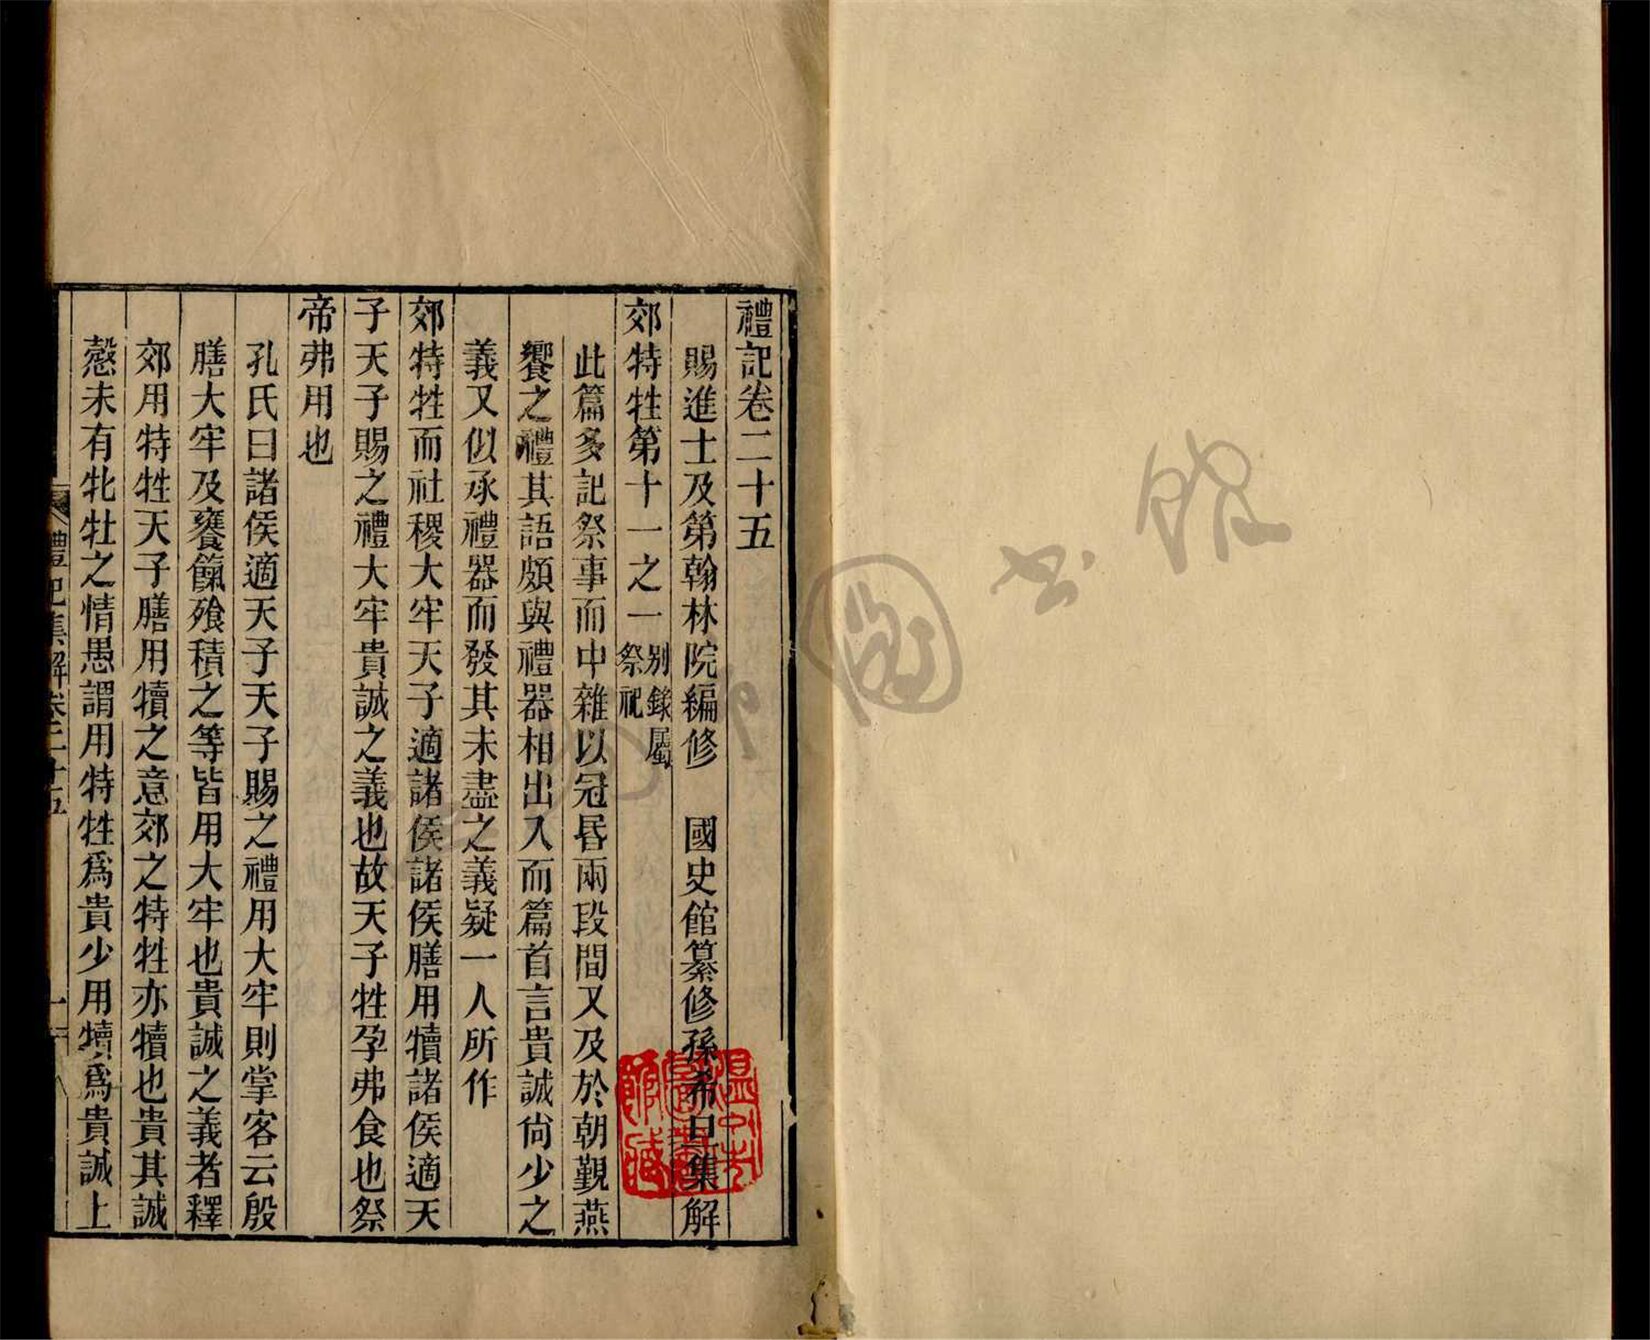 禮記卷二十五
賜進士及第翰林院編修　國史館纂修孫希旦集解
郊特牲第十一之一別錄屬祭祀
此篇多記祭事而中雜以冠昬兩段間又及於朝覲燕
饗之禮其語頗與禮器相出入而篇首言貴誠尙少之
義又似承禮器而發其未盡之義疑一人所作
郊特牲而社稷大牢天子適諸侯諸侯膳用犢諸侯適天
子天子賜之禮大牢貴誠之義也故天子牲孕弗食也祭
帝弗用也
孔氏曰諸侯適天子天子賜之禮用大牢則掌客云殷
膳大牢及饔餼飱積之等皆用大牢也貴誠之義者釋
郊用特牲天子膳用犢之意郊之特牲亦犢也貴其誠
慤未有牝牡之情愚謂用特牲爲貴少用犢爲貴誠上
禮記集解卷二十五
一